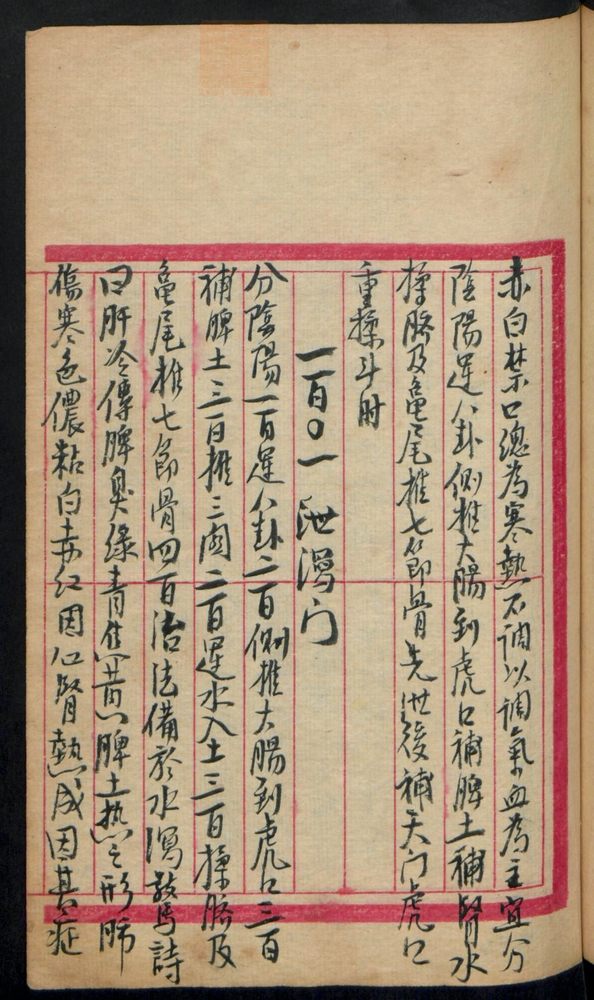 赤白禁口總為寒熱不調以調氣血為主宜分
陰陽運八卦側推大腸到虎口補脾土補腎水
揉臍及龜尾推七節骨先泄後補天门虎口
重揉斗肘
一百〇一 泄瀉门
分陰陽一百運八卦二百側推大腸到虎口三百
補脾土三百推三関二百運水入土三百揉臍及
龜尾推七節骨四百治法備於水瀉 詩
曰肝冷傳脾臭綠青焦黄脾土热之形肺
傷寒色儂粘白赤红因心腎熱成因其症